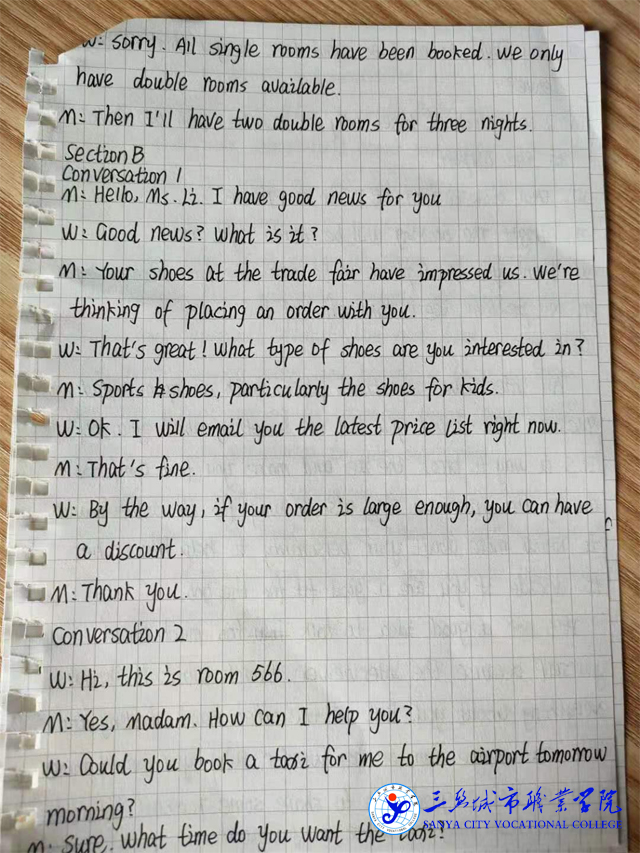 W: Sorry. All single rooms have been booked. We only
have double rooms available.
M: Then I'll have two double rooms for three nights.
Section B
Conversation 1
M: Hello, Ms. Li. I have good news for you
W: Good news? What is it?
M: Your shoes at the trade fair have impressed us. We're
thinking of placing an order with you.
W: That's great! What type of shoes are you interested in?
M: Sports shoes, particularly the shoes for kids.
W: Ok. I will email you the latest price list right now.
M: That's fine.
W: By the way, if your order is large enough, you can have
a discount.
M: Thank you.
Conversation 2
W: Hi, this is room 566.
M: Yes, madam. How can I help you?
W: Could you book a taxi for me to the airport tomorrow
morning?
M: Sure. What time do you want the taxi?
三亚城市职业学院
SANYA CITY VOCATIONAL COLLEGE